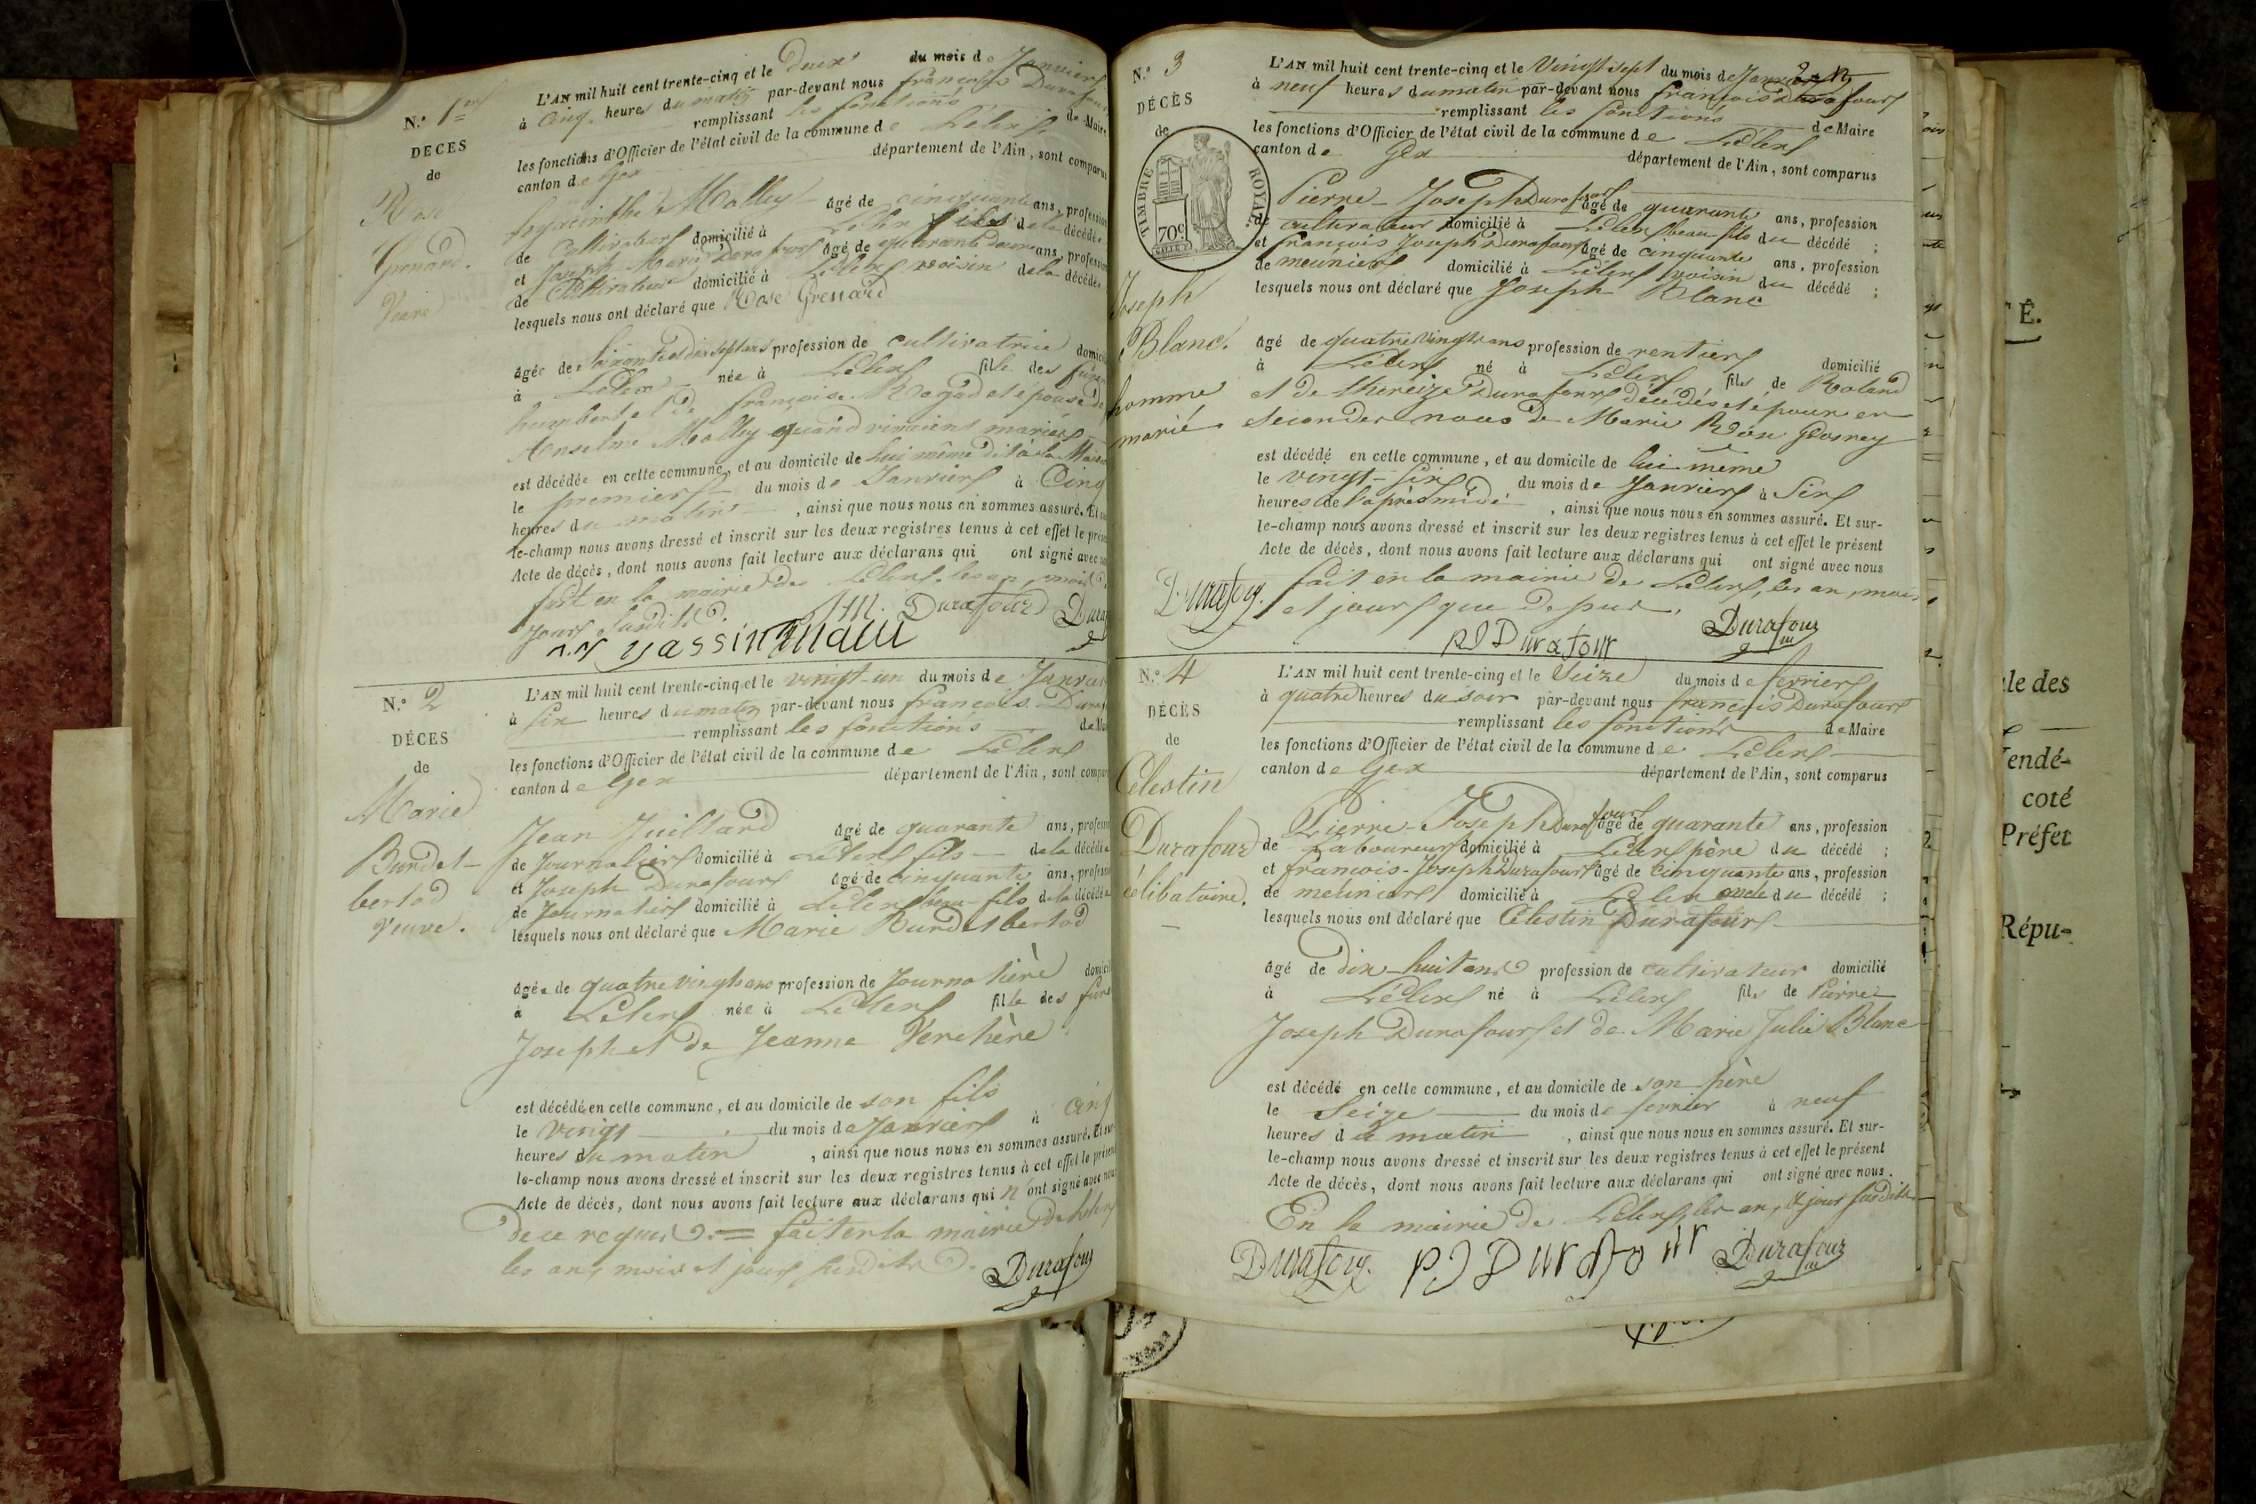 N.º 1er
DÉCES
de
Rose
Grenard.
Veuve
L'AN mil huit cent trente-cinq et le Deux du mois de Janvier
à Cinq heures du matin par-devant nous françois Durafour
remplissant les fonctions de Maire
les fonctions d'Officier de l'état civil de la commune de Lélex
canton de Gex département de l'Ain, sont comparus
hyacinthe Molley âgé de cinquante ans, profession
de Cultivateur domicilié à Lélex fils de la décédée
et Joseph Marie Durafour âgé de quarante deux ans, profession
de Cultivateur domicilié à Lélex voisin de la décédée
lesquels nous ont déclaré que Rose Grenard
âgée de soixante et dix sept ans profession de cultivatrice
à Lélex née à Lélex fille des
humbert et de françoise et épouse de
Anselme Molley quand mariés
est décédée en cette commune, et au domicile de lui même dit à la
le premier du mois de Janvier à Cinq
heures du matin, ainsi que nous nous en sommes assuré. Et
le-champ nous avons dressé et inscrit sur les deux registres tenus à cet effet le
Acte de décès, dont nous avons fait lecture aux déclarans qui ont signé avec
fait en la mairie de Lélex, les an, mois
jour susdits.
JM. Durafour
N.º 2
DÉCES
de
Marie
Burdet
bertod
Veuve.
L'AN mil huit cent trente-cinq et le vingt-un du mois de Janvier
à six heures du matin par-devant nous françois
remplissant les fonctions de
les fonctions d'Officier de l'état civil de la commune de Lélex
canton de Gex département de l'Ain, sont
Jean Juillard âgé de quarante ans,
de Journalier domicilié à Lélex fils de la décédée
et Joseph Durafour âgé de cinquante ans,
de Journalier domicilié à Lélex beau-fils de la décédée
lesquels nous ont déclaré que Marie Burdet bertod
âgée de quatre vingts ans profession de Journalière
à Lélex née à Lélex fille des
Joseph et de Jeanne Verchère
est décédé en cette commune, et au domicile de son fils
le vingt du mois de Janvier à cinq
heures du matin, ainsi que nous nous en sommes assuré. Et
le-champ nous avons dressé et inscrit sur les deux registres tenus à cet effet le
Acte de décès, dont nous avons fait lecture aux déclarans qui n'ont signé avec
de ce requis. = fait en la mairie de Lélex
les an, mois et jour susdits.
Durafour
N.º 3
DÉCÈS
de
TIMBRE ROYAL
70c
Joseph
Blanc.
homme
marié.
L'AN mil huit cent trente-cinq et le Vingt sept du mois de Janvier
à neuf heures du matin par-devant nous françois Durafour
remplissant les fonctions de Maire
les fonctions d'Officier de l'état civil de la commune de Lélex
canton de Gex département de l'Ain, sont comparus
Pierre-Joseph Durafour âgé de quarante ans, profession
de cultivateur domicilié à Lélex beau fils du décédé ;
et françois Joseph Durafour âgé de cinquante ans, profession
de meunier domicilié à Lélex voisin du décédé ;
lesquels nous ont déclaré que Joseph Blanc
âgé de quatre vingts ans profession de rentier domicilié
à Lélex né à Lélex fils de Roland
et de thereize Durafour décédés et époux en
secondes noces de Marie Rose Grosrey
est décédé en cette commune, et au domicile de lui-même
le vingt-six du mois de Janvier à six
heures de l'après midi, ainsi que nous nous en sommes assuré. Et sur-
le-champ nous avons dressé et inscrit sur les deux registres tenus à cet effet le présent
Acte de décès, dont nous avons fait lecture aux déclarans qui ont signé avec nous
fait en la mairie de Lélex, les an, mois
et jour que dessus.
Durafour PJ Durafour Durafour
N.º 4
DÉCÈS
de
Célestin
Durafour
célibataire.
L'AN mil huit cent trente-cinq et le Seize du mois de fevrier
à quatre heures du soir par-devant nous françois Durafour
remplissant les fonctions de Maire
les fonctions d'Officier de l'état civil de la commune de Lélex
canton de Gex département de l'Ain, sont comparus
Pierre-Joseph Durafour âgé de quarante ans, profession
de Laboureur domicilié à Lélex père du décédé ;
et françois-Joseph Durafour âgé de cinquante ans, profession
de meunier domicilié à Lélex oncle du décédé ;
lesquels nous ont déclaré que Célestin Durafour
âgé de dix-huit ans profession de cultivateur domicilié
à Lélex né à Lélex fils de Pierre
Joseph Durafour et de Marie Julie Blanc
est décédé en cette commune, et au domicile de son père
le Seize du mois de fevrier à neuf
heures du matin, ainsi que nous nous en sommes assuré. Et sur-
le-champ nous avons dressé et inscrit sur les deux registres tenus à cet effet le présent
Acte de décès, dont nous avons fait lecture aux déclarans qui ont signé avec nous.
En la mairie de Lélex, les an, & jour susdits
Durafour PJ Durafour Durafour
É.
le des
endé-
coté
Préfet
Répu-